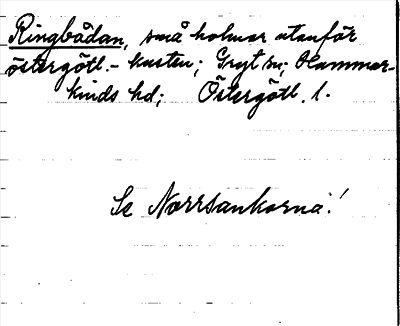 Ringbådan, små holmar utanför
östergötl.-kusten; Gryt sn; Hammar-
kinds hd; Östergötl. l.
Se Norrsankorna!